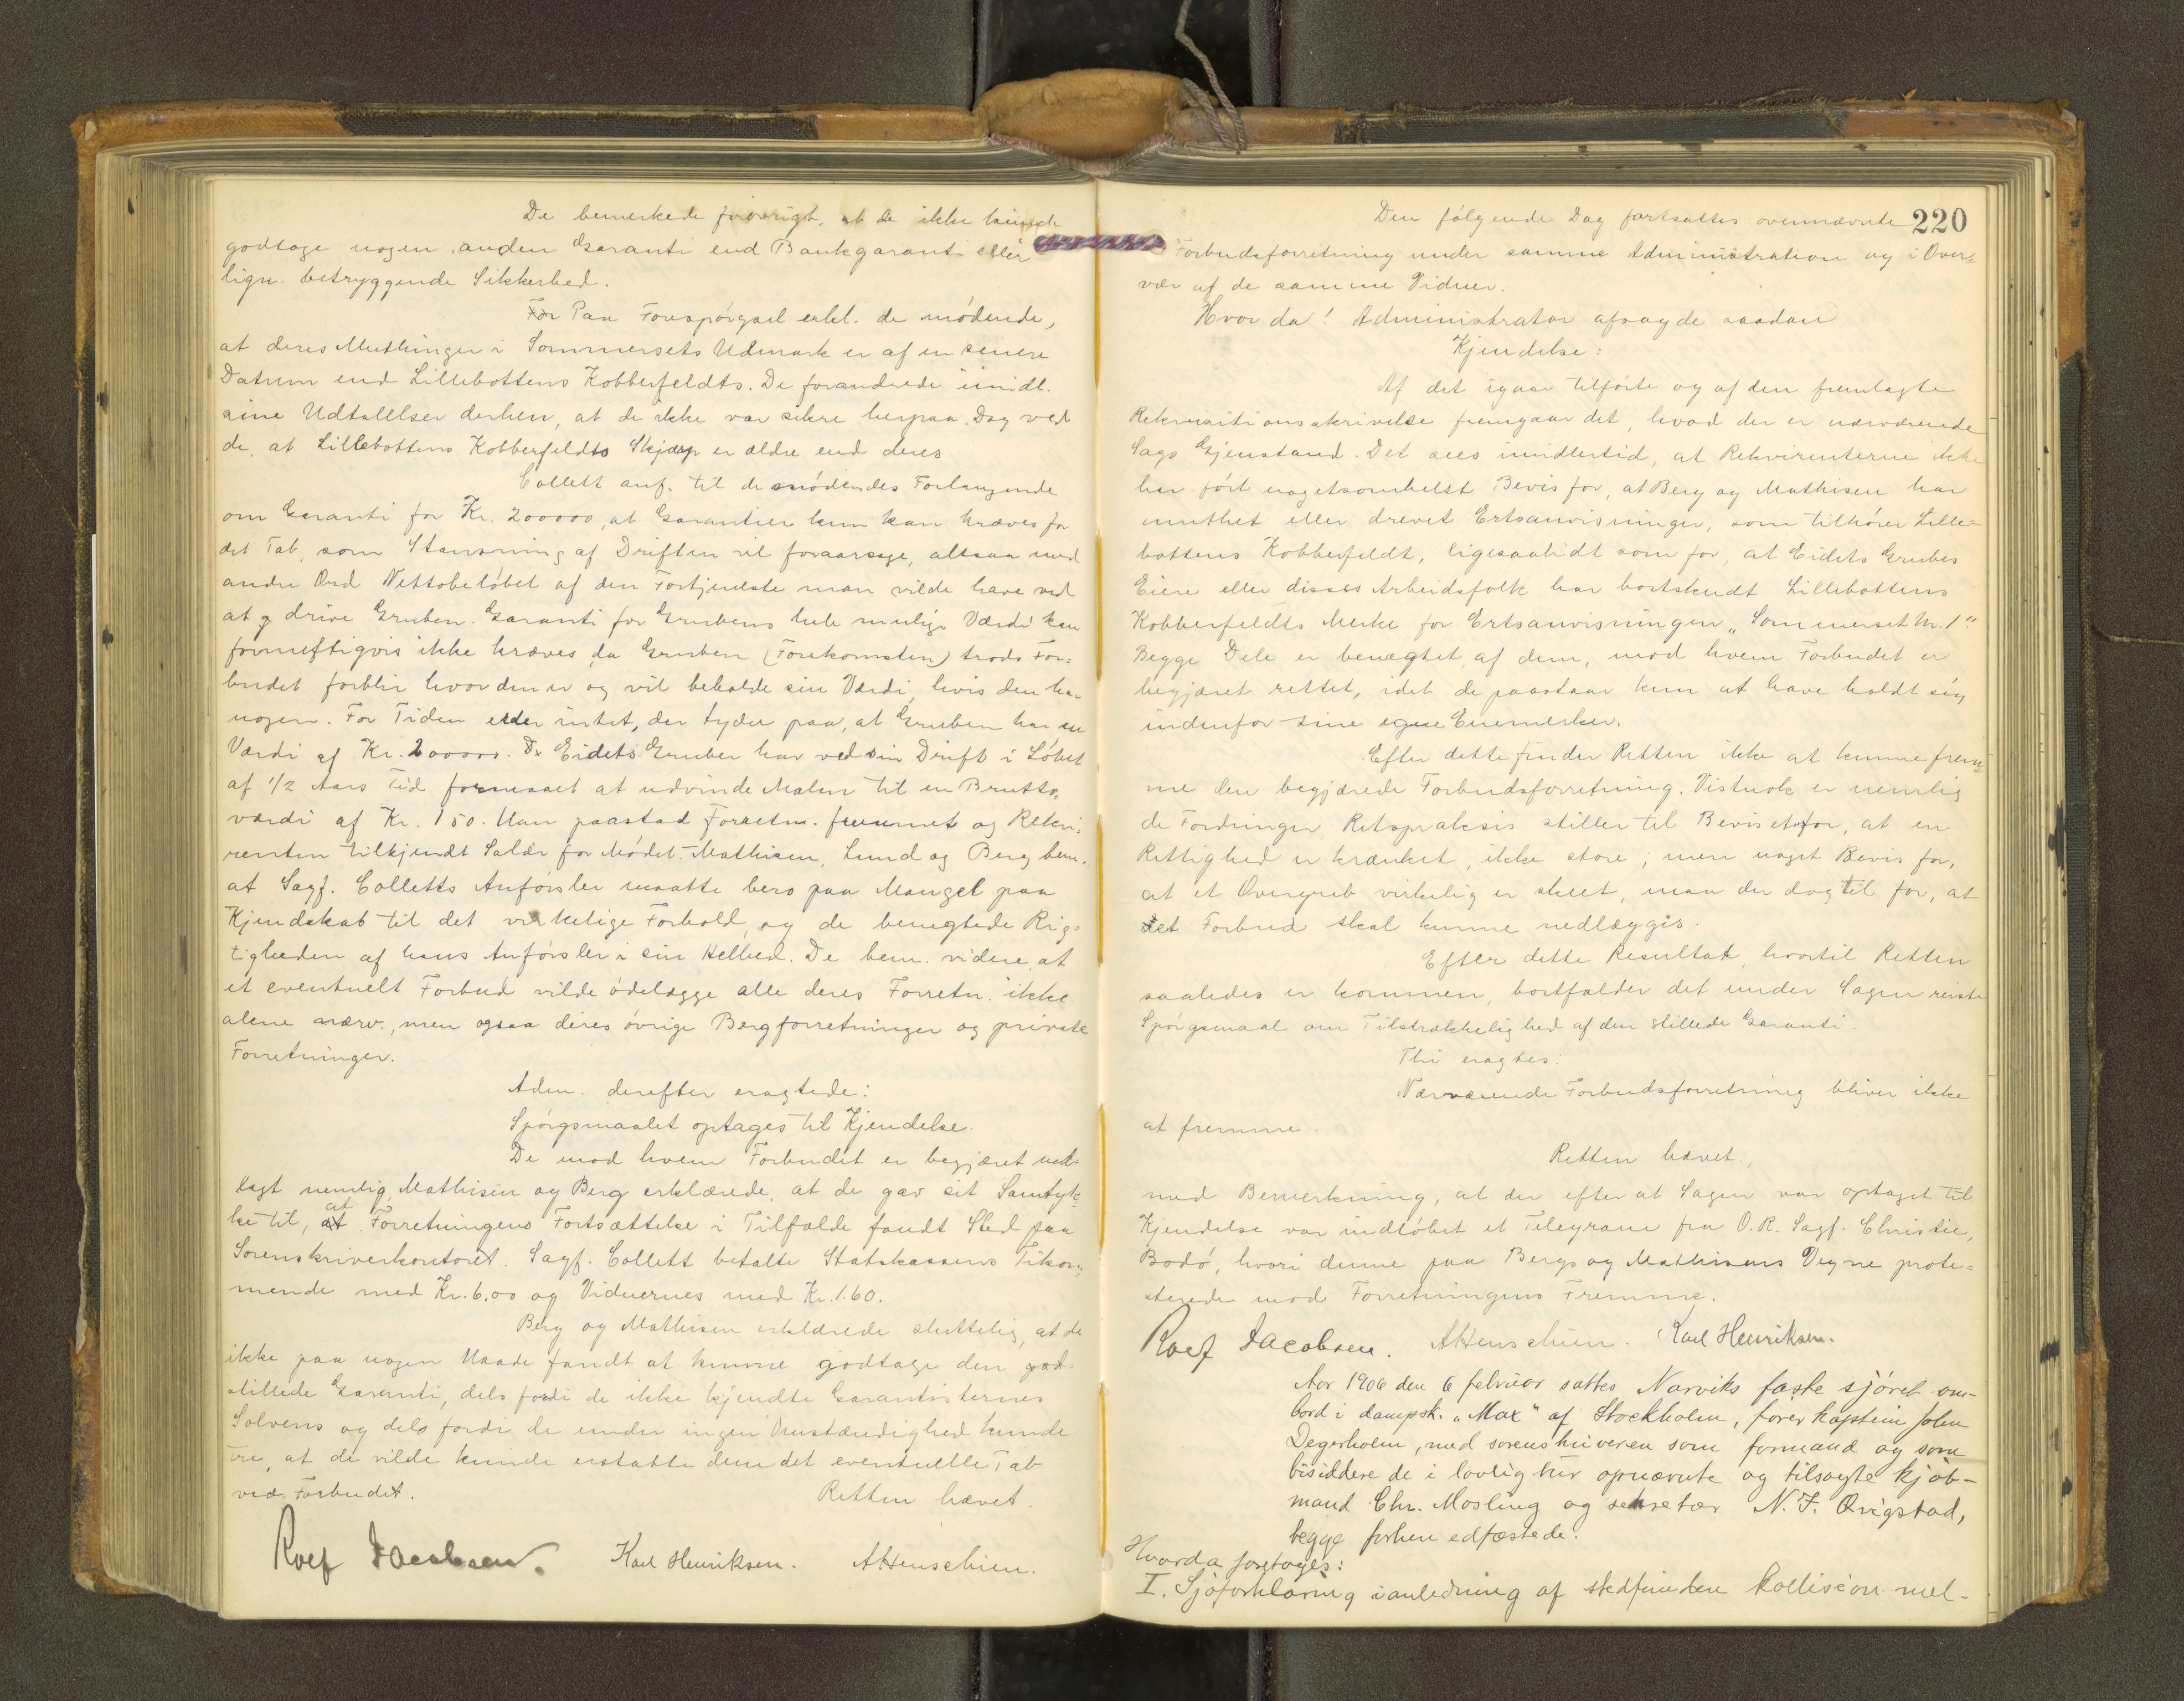 De bemerkede forøvrigt, at de ikke kunde
godtage nogen anden Garanti end Bankgaranti eller
lign. betryggende Sikkerhed.
For Paa Forespørgsel erkl. de mødende,
at deres Muthinger i Sommersets Udmark er af en senere
Datum end Lillebottens Kobberfeldts. De forandrede imidl.
sine Udtalelser derhen, at de ikke var sikre herpaa. Dog ved
de, at Lillebottens Kobberfeldts Skjærp er ældre end deres
Collett anf. til de mødendes Forlangende
om Garanti for Kr. 200000, at Garantien kun kan kræves for
det Tab, som Standsning af Driften vil foraarsage, altsaa med
andre Ord Nettobeløbet af den Fortjeneste man vilde have ved
at drive Gruben. Garanti for Grubens hele mulige Værdi kan
fornuftigvis ikke kræves, da Gruben (Forekomsten) trods For-
budet forblir hvor den er og vil beholde sin Værdi, hvis den har
nogen. For Tiden er der intet, der tyder paa, at Gruben har en
Værdi af Kr. 200000. De Eidets Gruber har ved sin Drift i Løbet
af 1/2 Aars Tid formaaet at udvinde Malm til en Brutto-
værdi af Kr. 150. Man paastod Forretn. fremmet og Rekvi-
renten tilkjendt Salær for Mødet. Mathisen, Lund og Berg bem.
at Sagf. Colletts Anførsler maatte bero paa Mangel paa
Kjendskab til det virkelige Forhold, og de benegtede Rig-
tigheden af hans Anførsler i sin Helhed. De bem. videre, at
et eventuelt Forbud vilde ødelægge alle deres Forretn. ikke
alene nærv., men ogsaa deres øvrige Bergforretninger og private
Forretninger.
Adm. derefter eragtede:
Spørgsmaalet optages til Kjendelse.
De mod hvem Forbudet er begjæret ned-
lagt nemlig Mathisen og Berg erklærede, at de gav sit Samtyk-
ke til, at at Forretningens Fortsættelse i Tilfælde fandt Sted paa
Sorenskriverkontoret. Sagf. Collett betalte Statskassens Tilkom-
mende med Kr. 6,00 og Vidnernes med Kr. 1.60.
Berg og Mathisen erklærede sluttelig, at de
ikke paa nogen Maade fandt at kunne godtage den
stillede Garanti, dels fordi de ikke kjendte Garantisternes
Solvens og dels fordi de under ingen Omstændighed kunde
tro, at de vilde kunde erstatte dem det eventuelle Tab
ved Forbudet. Retten hævet.
Rolf Jacobsen. Karl Henriksen. A Henschien.
Den følgende Dag fortsattes ovennævnte 220
Forbudsforretning under samme Administration og i Over-
vær af de samme Vidner.
Hvor da! Administrator afsagde saadan
Kjendelse:
Af det igaar tilførte og af den fremlagte
Rekvisitionsskrivelse fremgaar det, hvad der er nærværende
Sags Gjenstand. Det sees imidlertid, at Rekvirenterne ikke
har ført nogetsomhelst Bevis for, at Berg og Mathisen har
muthet eller drevet Ertsanvisninger, som tilhører Lille-
bottens Kobberfeldt, ligesaalidt som for, at Eidets Grubes
Eiere eller disses Arbeidsfolk har bortskudt Lillebottens
Kobberfeldts Merke for Ertsanvisningen "Sommerset Nr. 1".
Begge Dele er benægtet af dem, mod hvem Forbudet er
begjæret rettet, idet de paastaar kun at have holdt sig
indenfor sine egne Enemerker.
Efter dette finder Retten ikke at kunne frem-
me den begjærede Forbudsforretning. Vistnok er nemlig
de Fordringer, Retspraksis stiller til Beviset for, at en
Rettighed er krænket, ikke store; men noget Bevis for,
at et Overgreb virkelig er skeet, maa der dog til for, at
et Forbud skal kunne nedlægges.
Efter dette Resultat, hvortil Retten
saaledes er kommen, bortfalder det under Sagen reiste
Spørgsmaal om Tilstrækkelighed af den stillede Garanti.
Thi eragtes:
Nærværende Forbudsforretning bliver ikke
at fremme.
Retten hævet.,
med Bemerkning, at der efter at Sagen var optaget til
Kjendelse var indløbet et Telegram fra O.R. Sagf. Christie,
Bodø, hvori denne paa Bergs og Mathisens Vegne prote-
sterede mod Forretningens Fremme.
Rolf Jacobsen. A Henschien. Karl Henriksen.
Aar 1906 den 6 februar sattes Narviks faste sjøret om-
bord i dampsk. "Max" af Stockholm, fører kaptein John
Degerholm, med sorenskriveren som formand og som
bisiddere de i lovlig tur opnævnte og tilsagte kjøb-
mand Chr. Mosling og sekretær N. F. Qvigstad,
begge forhen edfæstede.
Hvorda foretoges:
I. Sjøforklaring i anledning af stedfunden kollision mel-